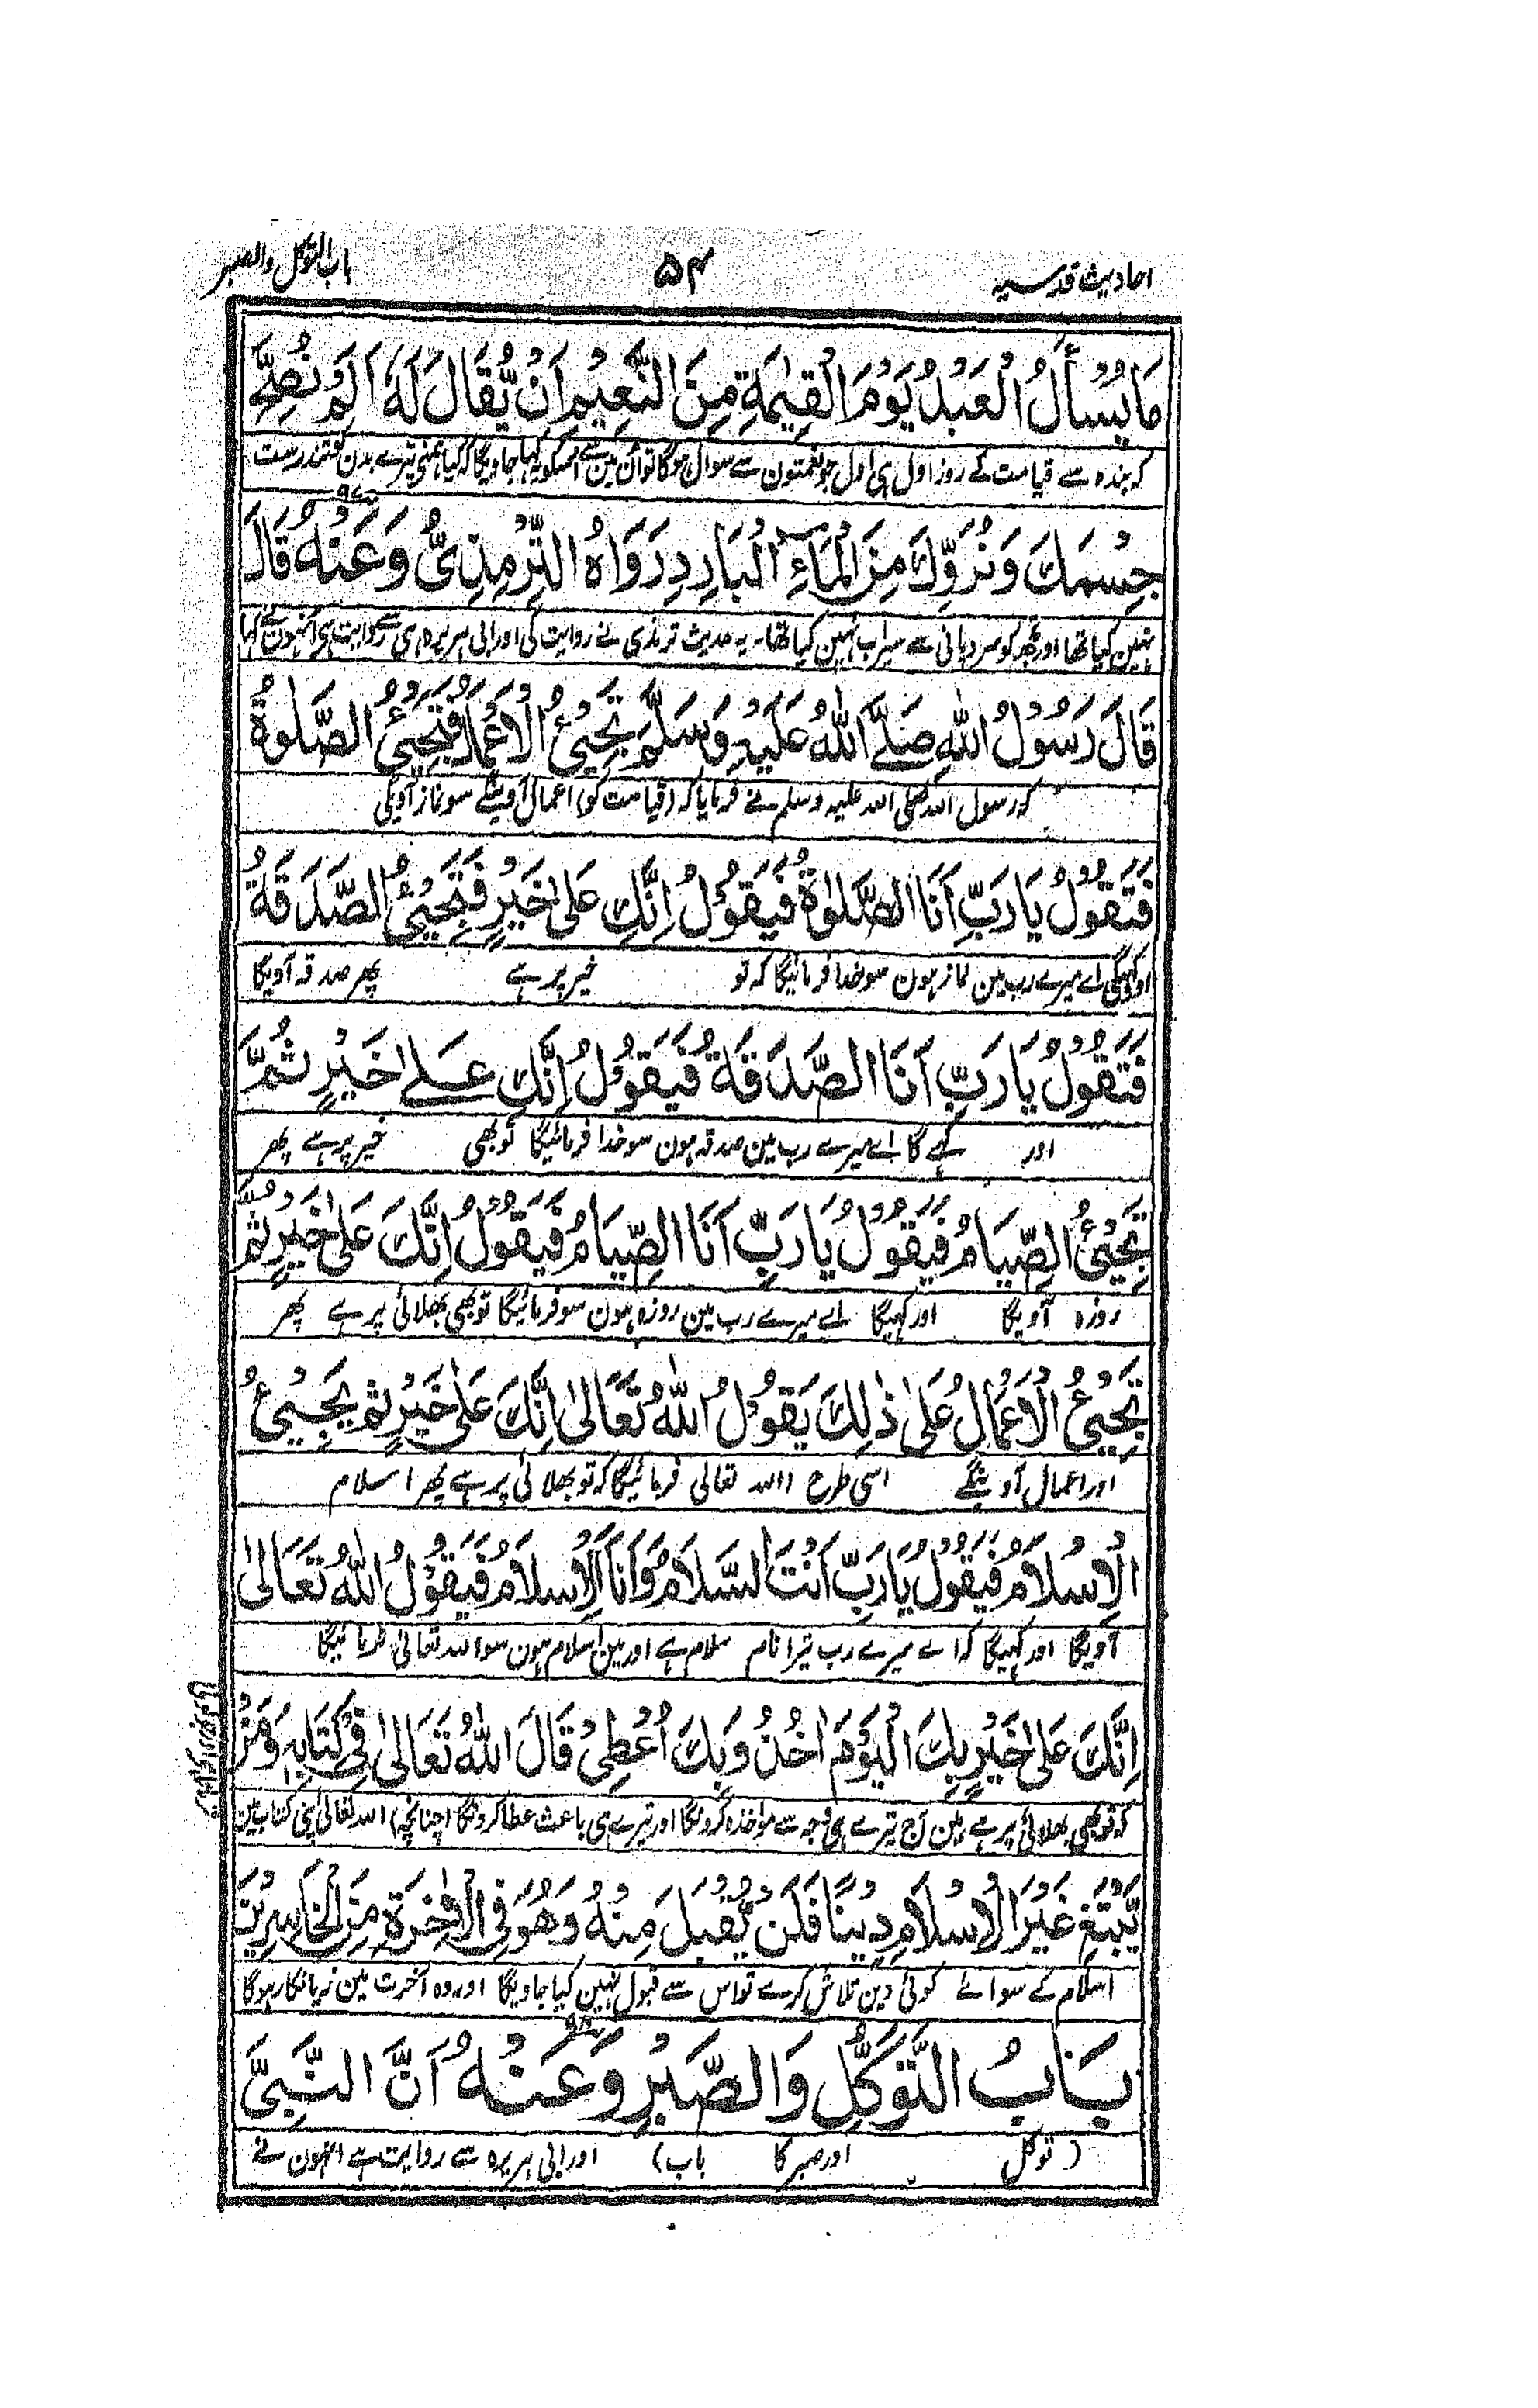 احادیث قدسیہ
۵۴
باب التوکل والصبر
مَا يُسْأَلُ الْعَبْدُ يَوْمَ الْقِيٰمَةِ مِنَ النَّعِيْمِ اَنْ يُّقَالَ لَهٗ اَلَمْ نُصِحَّ
کہ بندہ سے قیامت کے روز اول ہی اول جو نعمتون سے سوال ہوگا تو ان مین سے اسکو یہ کہا جاویگا کہ کیا ہمنے تیرے بدن کو تندرست
جِسْمَكَ وَنُرَوِّكَ مِنَ الْمَآءِ الْبَارِدِ رَوَاهُ التِّرْمِذِيُّ وَعَنْهُ قَالَ
نہین کیا تھا اور تجھ کو سرد پانی سے سیراب نہین کیا تھا۔ یہ حدیث ترمذی نے روایت کی اور ابی ہریرہ ہی سے روایت ہی انہون نے کہا
قَالَ رَسُوْلُ اللهِ صَلَّى اللهُ عَلَيْهِ وَسَلَّمَ تَجِيْئُ الْاَعْمَالُ فَتَجِيْئُ الصَّلٰوةُ
کہ رسول اللہ صلی اللہ علیہ وسلم نے فرمایا کہ (قیامت کو) اعمال آوینگے سو نماز آویگی
فَتَقُوْلُ يَا رَبِّ اَنَا الصَّلٰوةُ فَيَقُوْلُ اِنَّكِ عَلٰى خَيْرٍ فَتَجِيْئُ الصَّدَقَةُ
اور کہیگی اے میرے رب مین نماز ہون سو خدا فرمائیگا کہ تو خیر پر ہے پھر صدقہ آویگا
فَتَقُوْلُ يَا رَبِّ اَنَا الصَّدَقَةُ فَيَقُوْلُ اِنَّكِ عَلٰى خَيْرٍ ثُمَّ
اور کہے گا اے میرے رب مین صدقہ ہون سو خدا فرمائیگا تو بھی خیر پر ہے پھر
تَجِيْئُ الصِّيَامُ فَيَقُوْلُ يَا رَبِّ اَنَا الصِّيَامُ فَيَقُوْلُ اِنَّكَ عَلٰى خَيْرٍ ثُمَّ
روزہ آویگا اور کہیگا اے میرے رب مین روزہ ہون سو فرمائیگا تو بھی بھلائی پر ہے پھر
تَجِيْئُ الْاَعْمَالُ عَلٰى ذٰلِكَ يَقُوْلُ اللهُ تَعَالٰى اِنَّكَ عَلٰى خَيْرٍ ثُمَّ يَجِيْئُ
اور اعمال آوینگے اسی طرح اللہ تعالی فرمائیگا کہ تو بھلائی پر ہے پھر اسلام
الْاِسْلَامُ فَيَقُوْلُ يَا رَبِّ اَنْتَ السَّلَامُ وَاَنَا الْاِسْلَامُ فَيَقُوْلُ اللهُ تَعَالٰى
آویگا اور کہیگا کہ اے میرے رب تیرا نام سلام ہے اور مین اسلام ہون سو اللہ تعالی فرمائیگا
اِنَّكَ عَلٰى خَيْرٍ بِكَ الْيَوْمَ اٰخُذُ وَبِكَ اُعْطِيْ قَالَ اللهُ تَعَالٰى فِيْ كِتَابِهٖ وَمَنْ
کہ تو بھی بھلائی پر ہے مین آج تیرے ہی وجہ سے مواخذہ کرونگا اور تیرے ہی باعث عطا کرونگا (چنانچہ) اللہ تعالی اپنی کتاب مین
يَّبْتَغِ غَيْرَ الْاِسْلَامِ دِيْنًا فَلَنْ يُّقْبَلَ مِنْهُ وَهُوَ فِي الْاٰخِرَةِ مِنَ الْخَاسِرِيْنَ
اسلام کے سوائے کوئی دین تلاش کرے تو اس سے قبول نہین کیا جاویگا اور وہ آخرت مین زیانکار ہوگا
بَابُ التَّوَكُّلِ وَالصَّبْرِ وَعَنْهُ اَنَّ النَّبِيَّ
( توکل اور صبر کا باب) اور ابی ہریرہ سے روایت ہے انہون نے